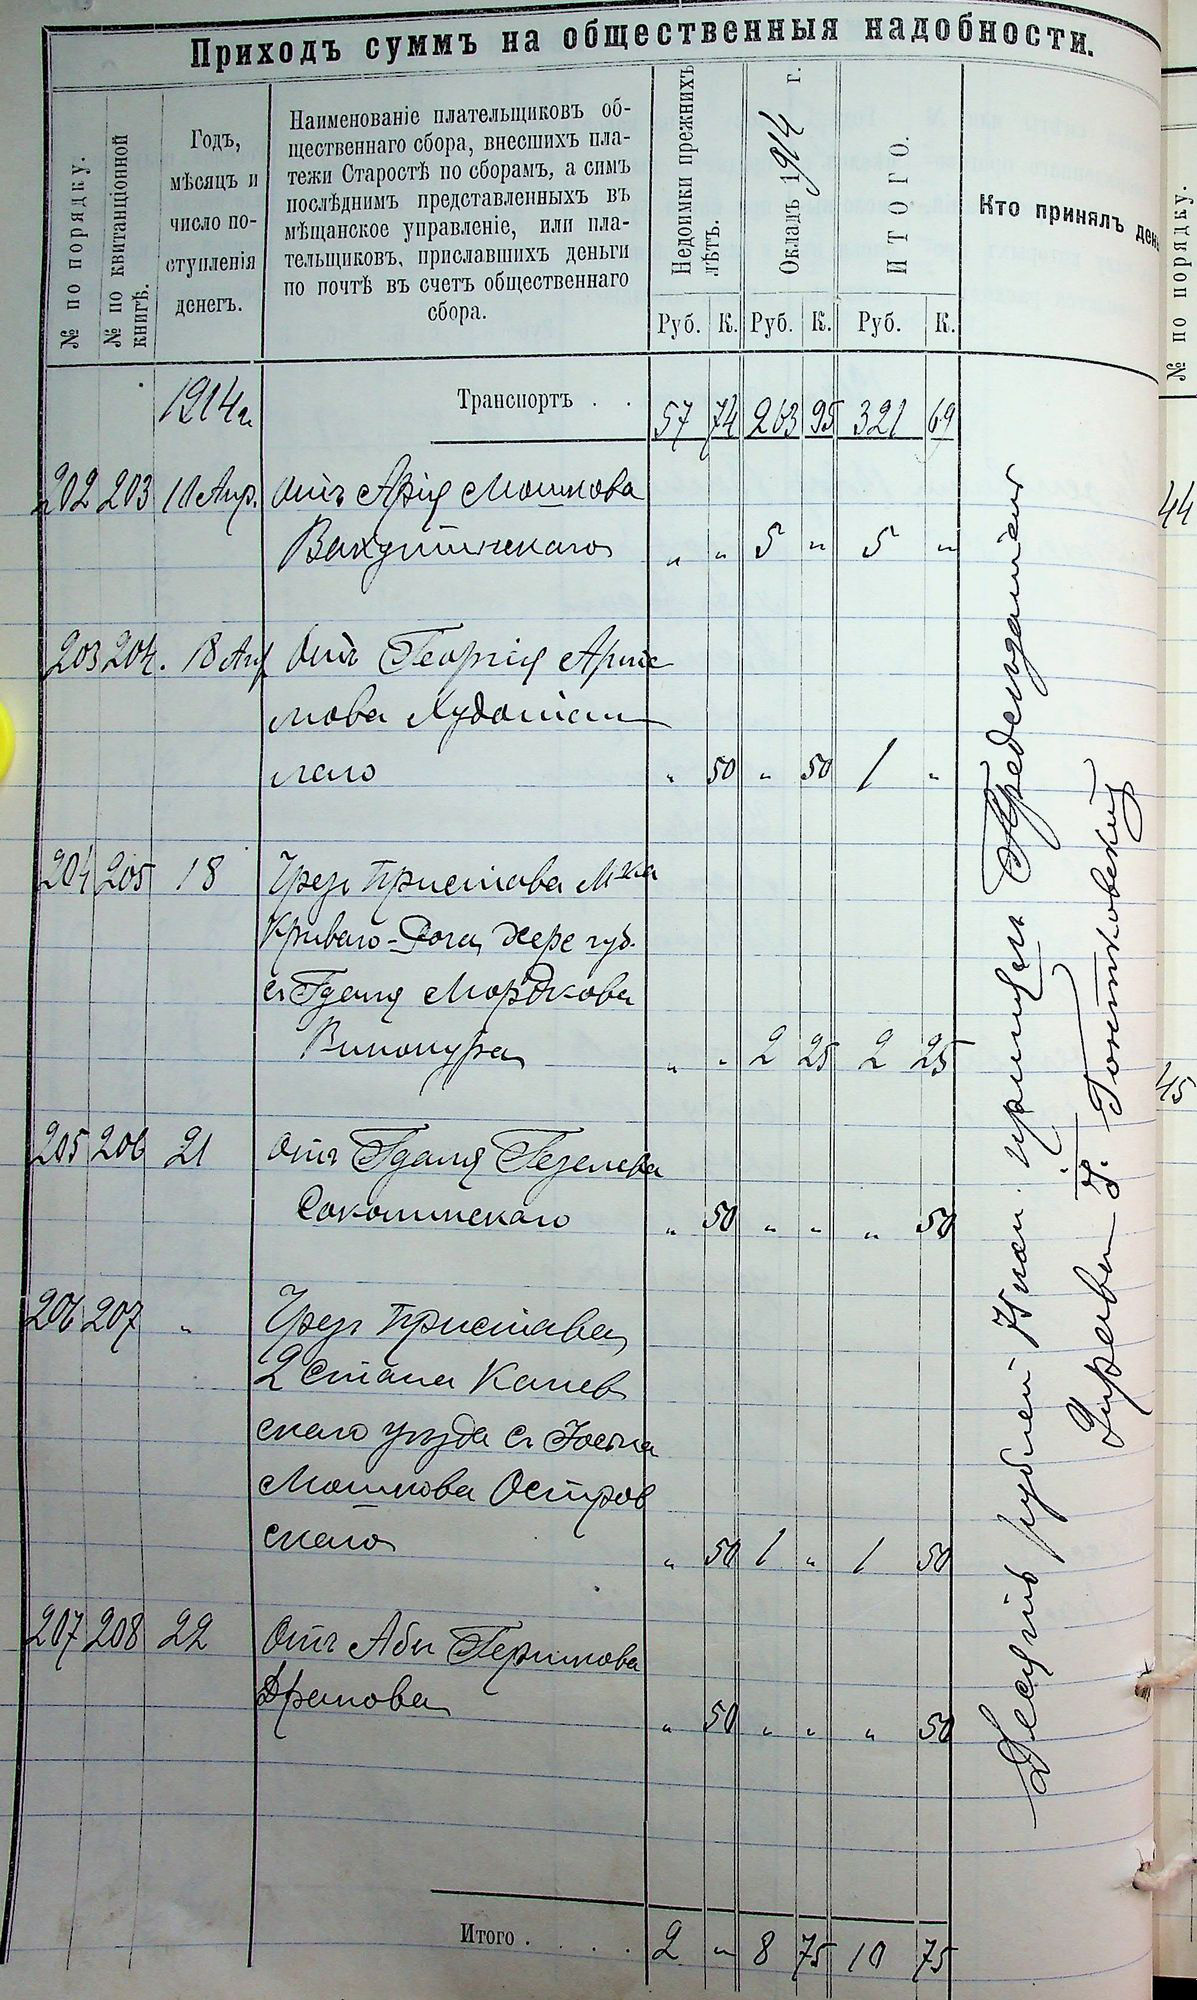 Приходъ суммъ на общественныя надобности.
№ по порядку.
№ по квитанціонной
книгѣ.
Годъ,
мѣсяцъ и
число по-
ступленія
денегъ.
Наименованіе плательщиковъ об-
щественнаго сбора, внесшихъ пла-
тежи Старостѣ по сборамъ, а симъ
послѣднимъ представленныхъ въ
мѣщанское управленіе, или пла-
тельщиковъ, приславшихъ деньги
по почтѣ въ счетъ общественнаго
сбора.
Недоимки прежнихъ
лѣтъ.
Окладъ 1914 г.
ИТОГО.
Кто принялъ ден
Руб. К. Руб. К. Руб. К.
1914 г. Транспортъ . . 57 74 263 95 321 69
202 203 Апр. Отъ Арія Мошкова
" " 5 " 5 "
203 204. 18 Апр Отъ Георгія
мова
" 50 " 50 1 "
204 205 18 Чрез Пристава М-ка
Криваго-Рога, Хере губ.
съ Гдаля Мордкова
Винокура " " 2 25 2 25
205 206 21 Отъ Гдаля Гезелева
Соколинскаго " 50 " " " 50
206 207 " Чрез Пристава
2 стана Канев
скаго уѣзда съ
Мошкова Остров
скаго " 50 1 " 1 50
207 208 22 Отъ Абы Гершкова
" 50 " " " 50
Итого . . . . 2 " 8 75 10 75
Десять рублей 75 коп. принялъ Предсѣдатель
Управы
№ по порядку.
44
45